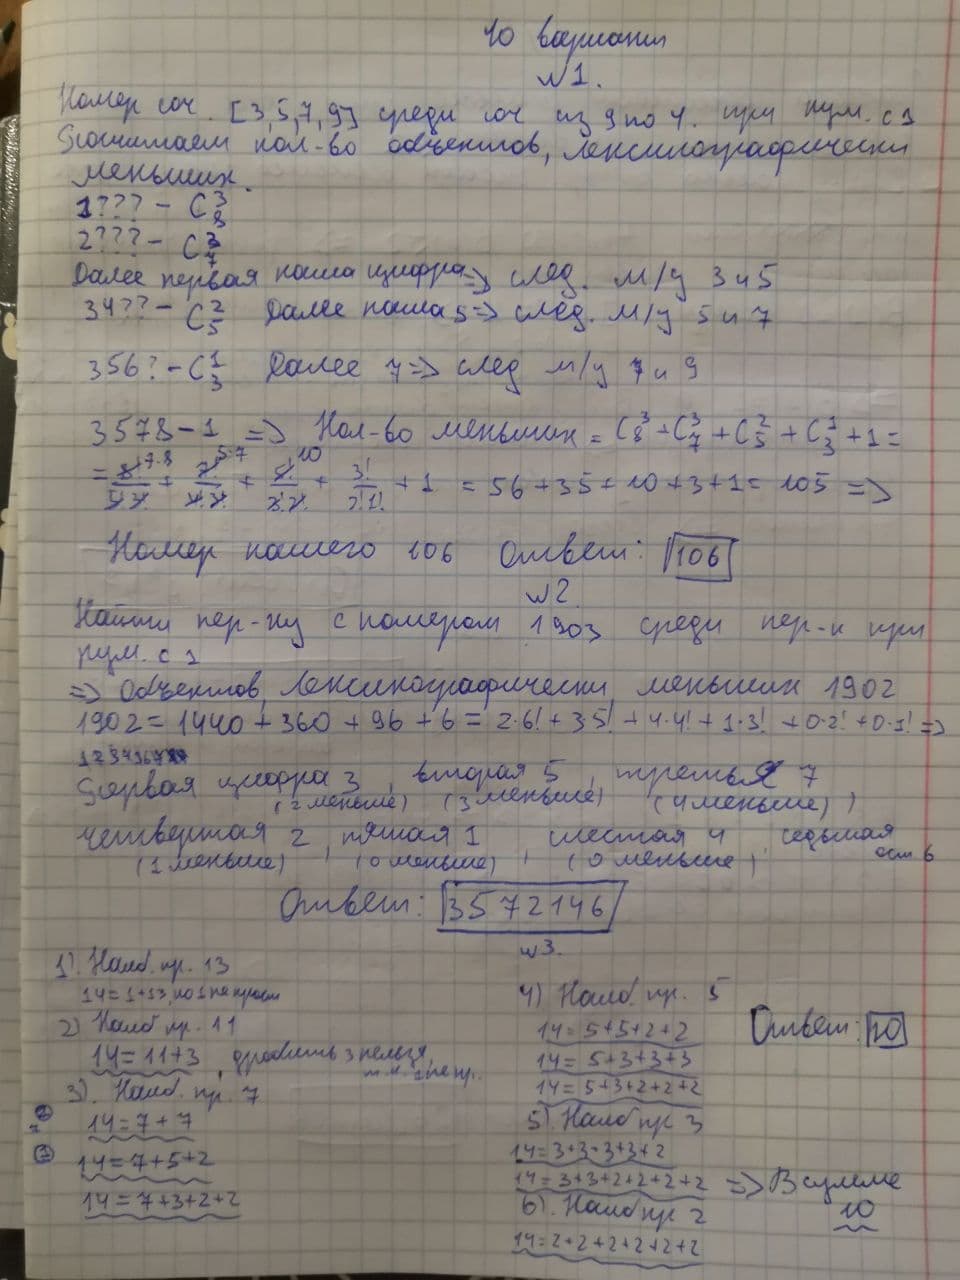 10 вариант
№1.
Номер соч. [3,5,7,9] среди соч из 9 по 4. при нум. с 1
Посчитаем кол-во объектов, лексикографически
меньших.
1??? - C₈³
2??? - C₇³
Далее первая наша цифра => след. м/у 3 и 5
34?? - C₅² Далее наша 5 => след. м/у 5 и 7
356? - C₃¹ Далее 7 => след м/у 7 и 9
3578 - 1 => Кол-во меньших = C₈³ + C₇³ + C₅² + C₃¹ + 1 =
= 8!/5!3! + 7!/4!3! + 5!/3!2! + 3!/2!1! + 1 = 56 + 35 + 10 + 3 + 1 = 105 =>
Номер нашего 106 Ответ: 106
№2.
Найти пер-ку с номером 1903 среди пер-к при
нум. с 1
=> Объектов, лексикографически меньших 1902
1902 = 1440 + 360 + 96 + 6 = 2·6! + 3·5! + 4·4! + 1·3! + 0·2! + 0·1! =>
Первая цифра 3, вторая 5, третья 7
(2 меньше) (3 меньше) (4 меньше)
четвертая 2, пятая 1 шестая 4 седьмая
(1 меньше), (0 меньше), (0 меньше), ост 6
Ответ: 3572146
№3.
1). Наиб. пр. 13
14 = 1 + 13, но 1 не прост
2) Наиб пр. 11
14 = 11 + 3, дробить 3 нельзя,
т.к. 1 не пр.
3). Наиб. пр. 7
14 = 7 + 7
14 = 7 + 5 + 2
14 = 7 + 3 + 2 + 2
4) Наиб. пр. 5
14 = 5 + 5 + 2 + 2
14 = 5 + 3 + 3 + 3
14 = 5 + 3 + 2 + 2 + 2
5). Наиб пр 3
14 = 3 + 3 + 3 + 3 + 2
14 = 3 + 3 + 2 + 2 + 2 + 2 => В сумме
10
6). Наиб пр 2
14 = 2 + 2 + 2 + 2 + 2 + 2
Ответ: 10